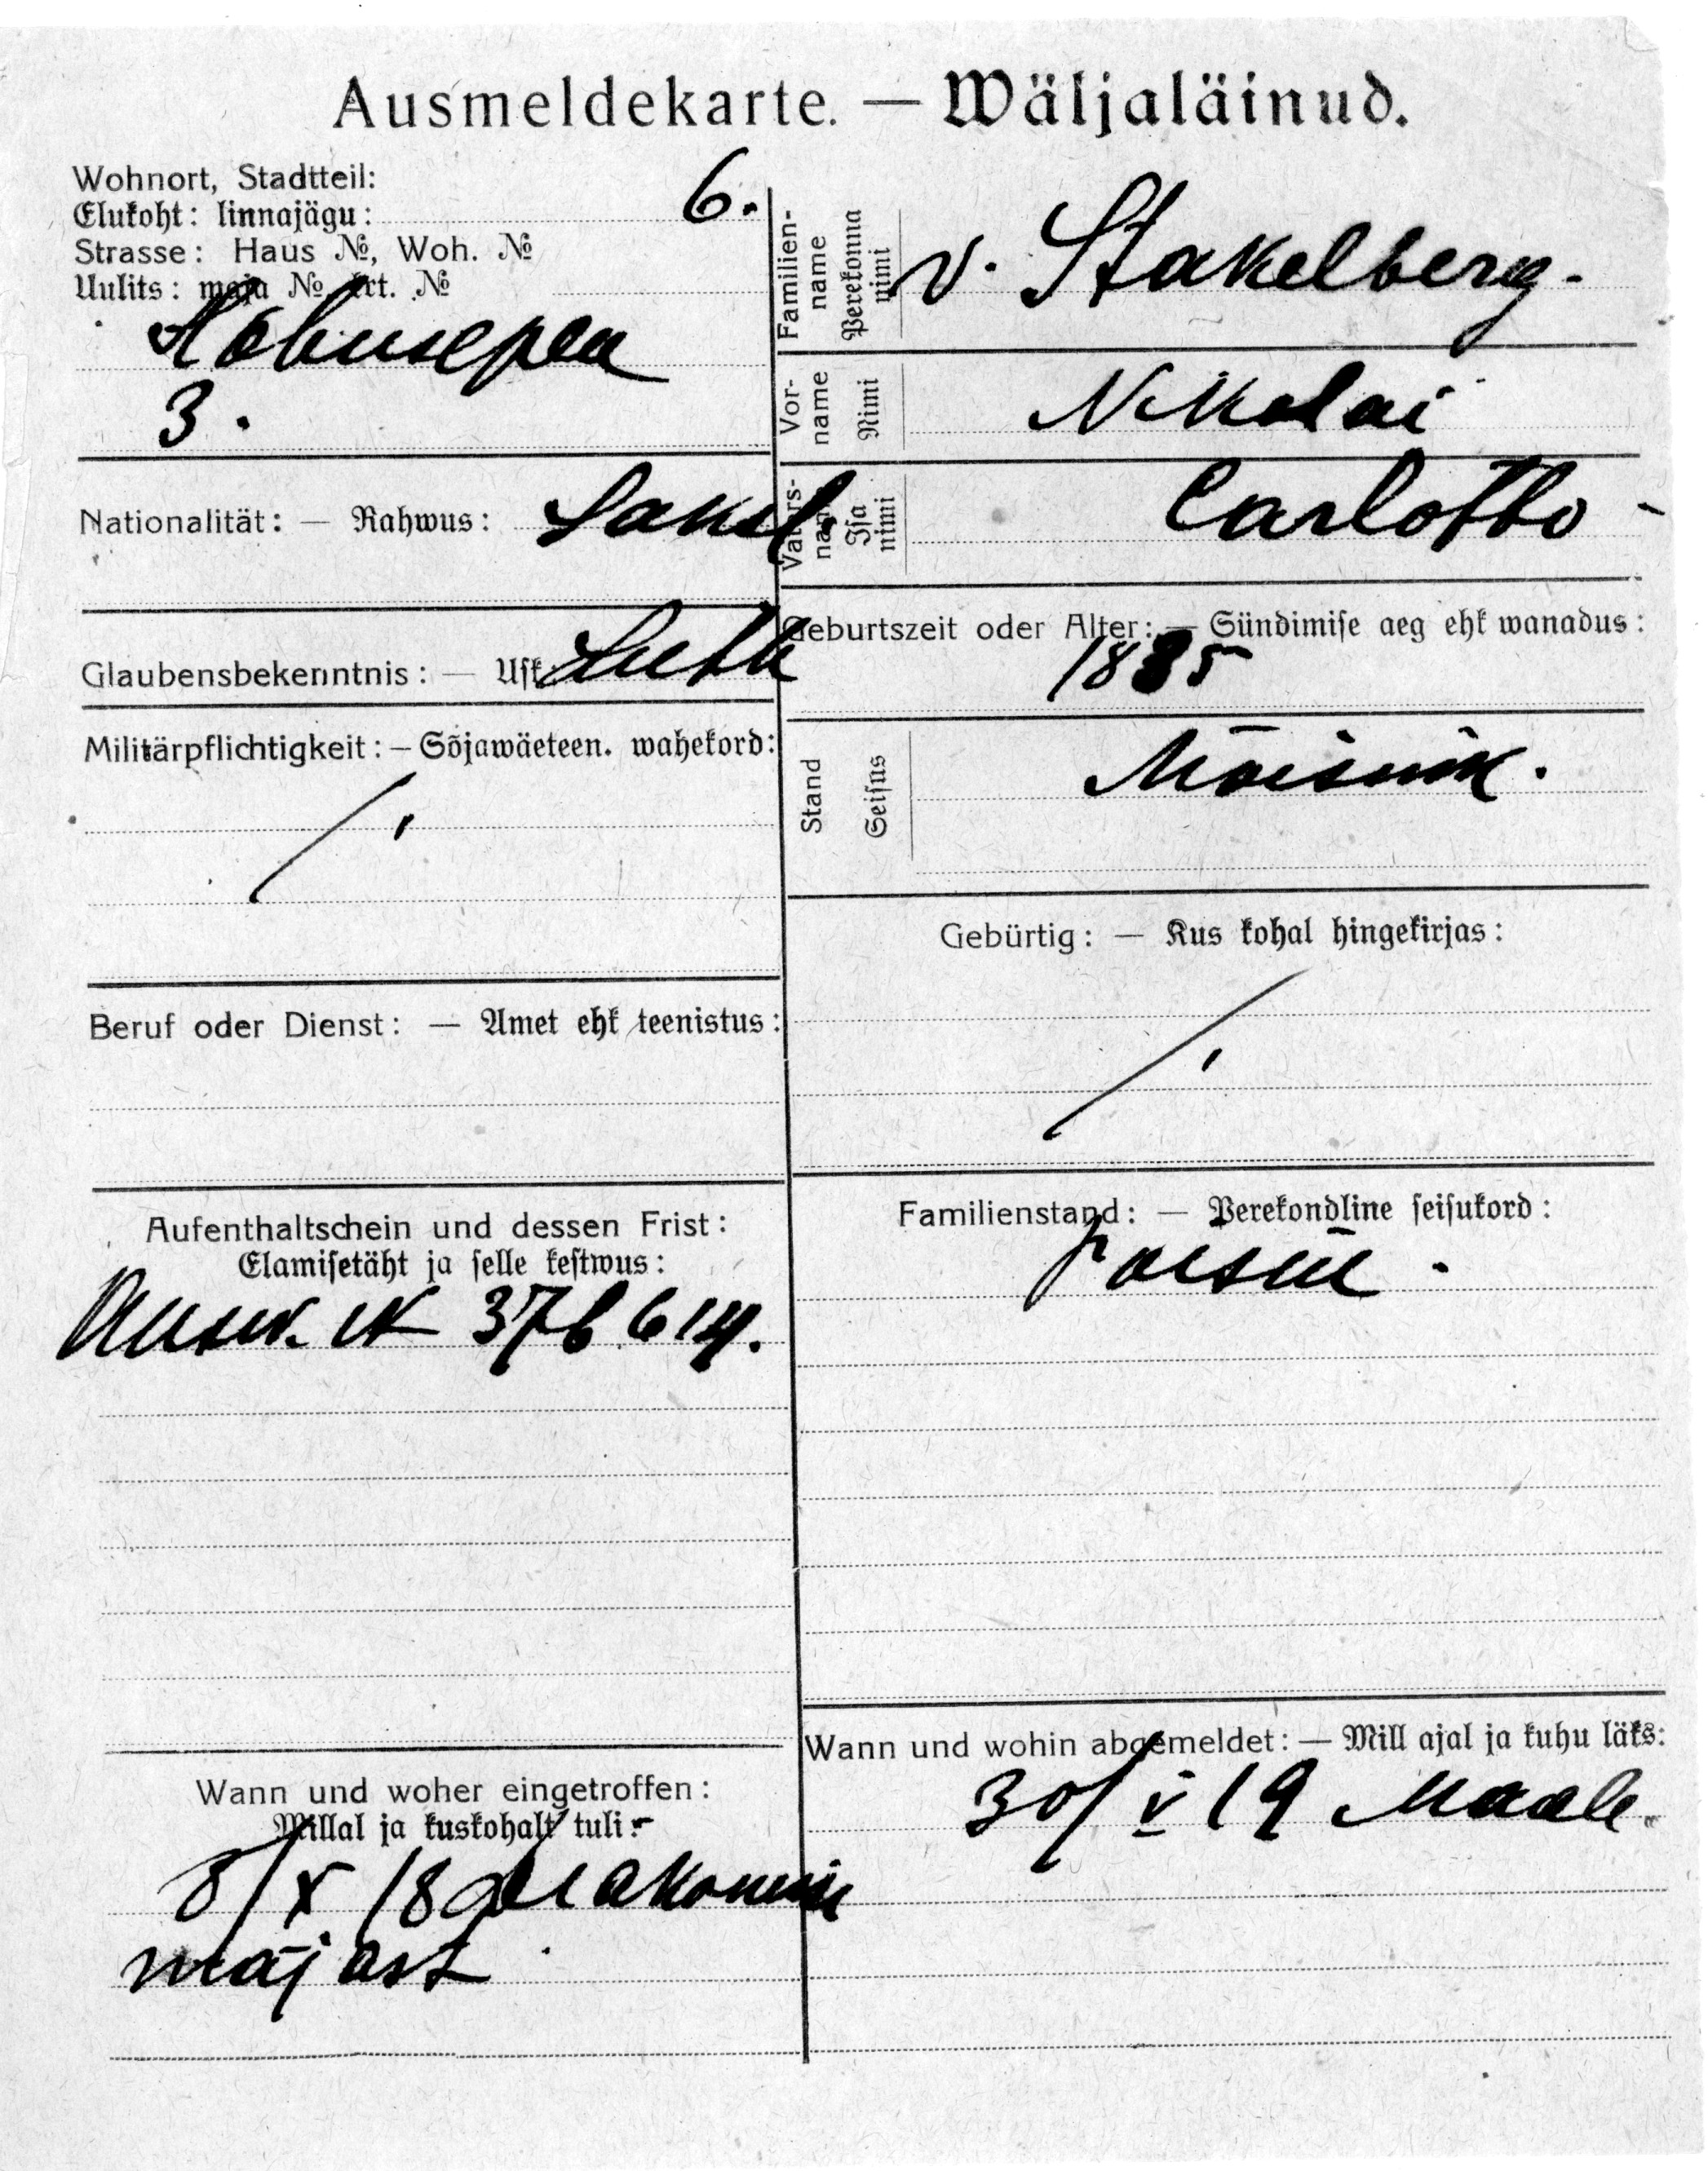 Ausmeldekarte. — Wäljaläinud.
Wohnort, Stadtteil:
Elukoht: linnajägu: 6.
Strasse: Haus №, Woh. №
Uulits: maja № krt. №
Hobusepea
3.
Nationalität: — Rahwus: Saksl.
Glaubensbekenntnis: — Usk: Luth
Militärpflichtigkeit: — Sõjawäeteen. wahekord:
Beruf oder Dienst: — Amet ehk teenistus:
Aufenthaltschein und dessen Frist:
Elamisetäht ja selle kestwus:
Ausw. N 376614.
Wann und woher eingetroffen:
Millal ja kuskohalt tuli:
8/X 18 Diakonissi
majast
Familienname Perekonna nimi v. Stakelberg.
Vorname Nimi Nikolai
Vatersname Isa nimi Carlotto
Geburtszeit oder Alter: — Sündimise aeg ehk wanadus:
1885
Stand Seisus Mõisnik.
Gebürtig: — Kus kohal hingekirjas:
Familienstand: — Perekondline seisukord:
Wann und wohin abgemeldet: — Mill ajal ja kuhu läks:
30/V 19 Maale.